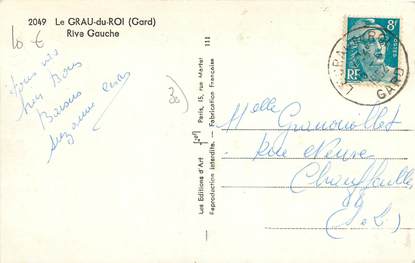 2049 Le GRAU-du-ROI (Gard)
Rive Gauche
10 €
Bons
Baisers
Suzanne
30
111
Les Editions d'Art
Paris, 15, rue Martel
Reproduction Interdite. - Fabrication Française
8F
POSTES
RF
GARD
Melle Granouillet
Rue Neuve
Chauffailles
(S-L)